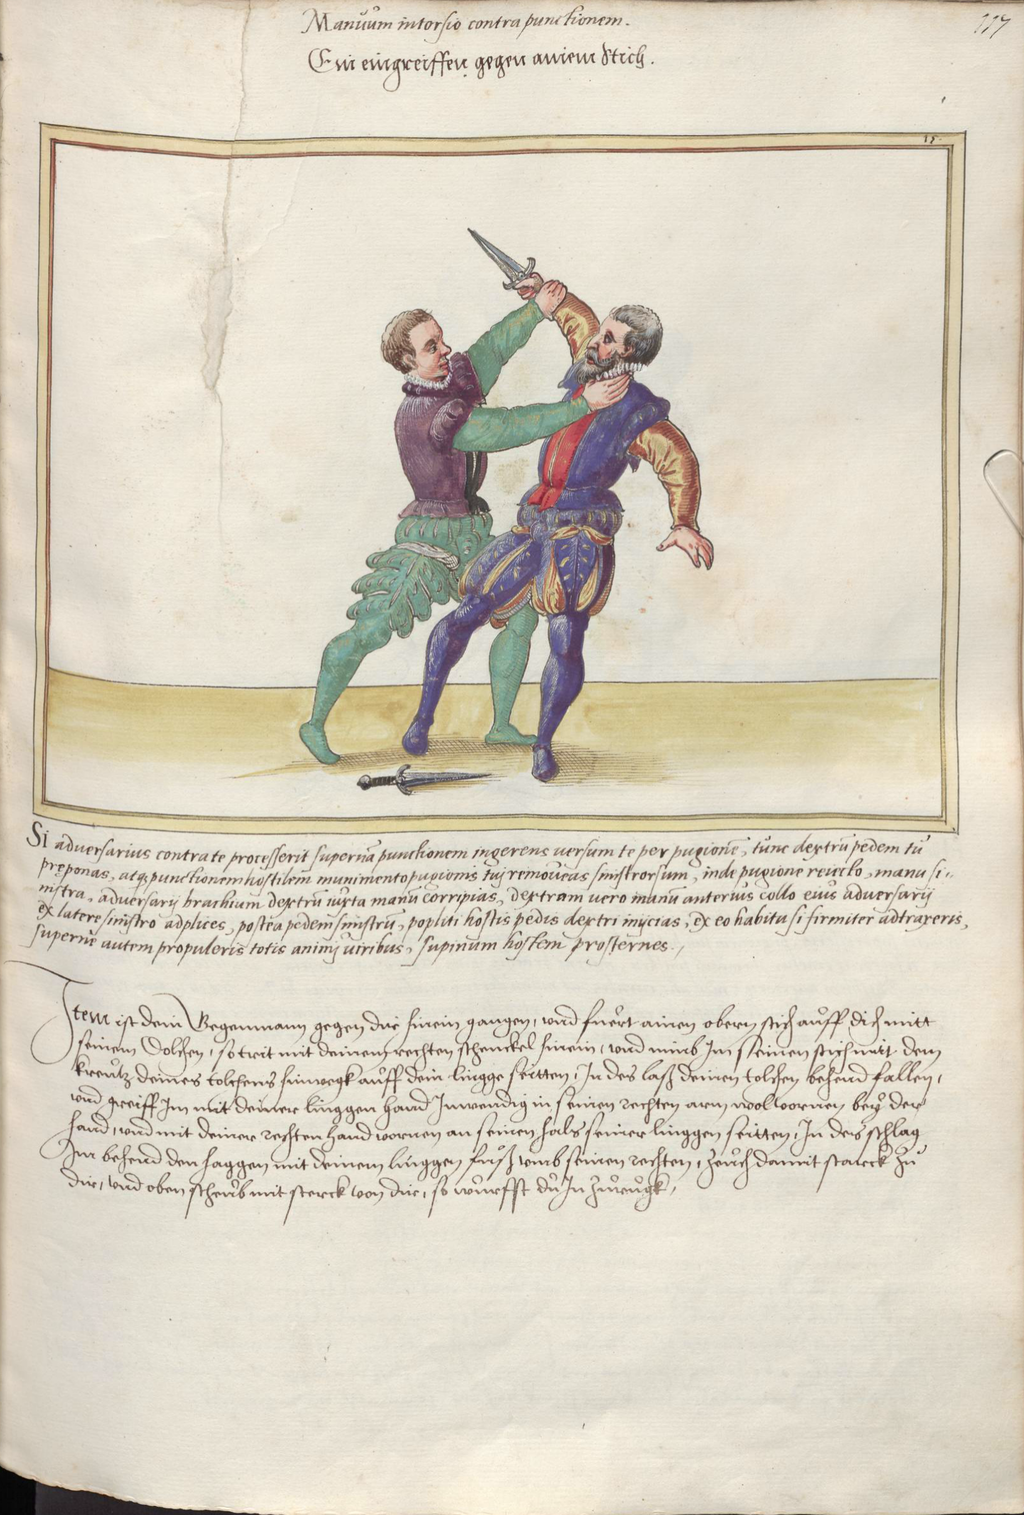 117
Manuum intorsio contra punctionem.
Ein eingreiffen gegen ainem Stich.
15.
Si adversarius contra te processerit supernã punctionem ingerens versum te per pugionẽ, tunc dextrũ pedem tu
preponas, atq; punctionem hostilem munimento pugionis tuj removeas sinistrorsum, inde pugione reiecto, manu si-
nistra, adversarij brachium dextrũ iuxta manũ corripias, dextram vero manũ anterius collo eius adversarij
ex latere sinistro adplices, postea pedem sinistrũ, popliti hostis pedis dextri inijcias, ex eo habitu si firmiter adtraxeris,
superne autem propuleris totis animj viribus, supinum hostem prosternes.
Item ist dein Gegenmann gegen dir hinein gangen, vnd fuert ainen obern stich auff dich mitt
seinem Dolchen, so trit mit deinem rechten schenckel hinein, vnd nimb Im seinen stich mit dem
kreutz deines tolchens hinwegk auff dein lingge seitten, In des lasz deinen tolchen behend fallen,
vnd greiff Im mit deiner linggen hand Inwendig in seinen rechten arm wol vornen bey der
hand, vnd mit deiner rechten hand vornen an seinen hals seiner linggen seitten, In des schlag
Im behend den haggen mit deinem linggen fuosz vmb seinen rechten, zeuch damit starck zu
dir, vnd oben scheub mit sterck von dir, so wurffst du In zurugk,